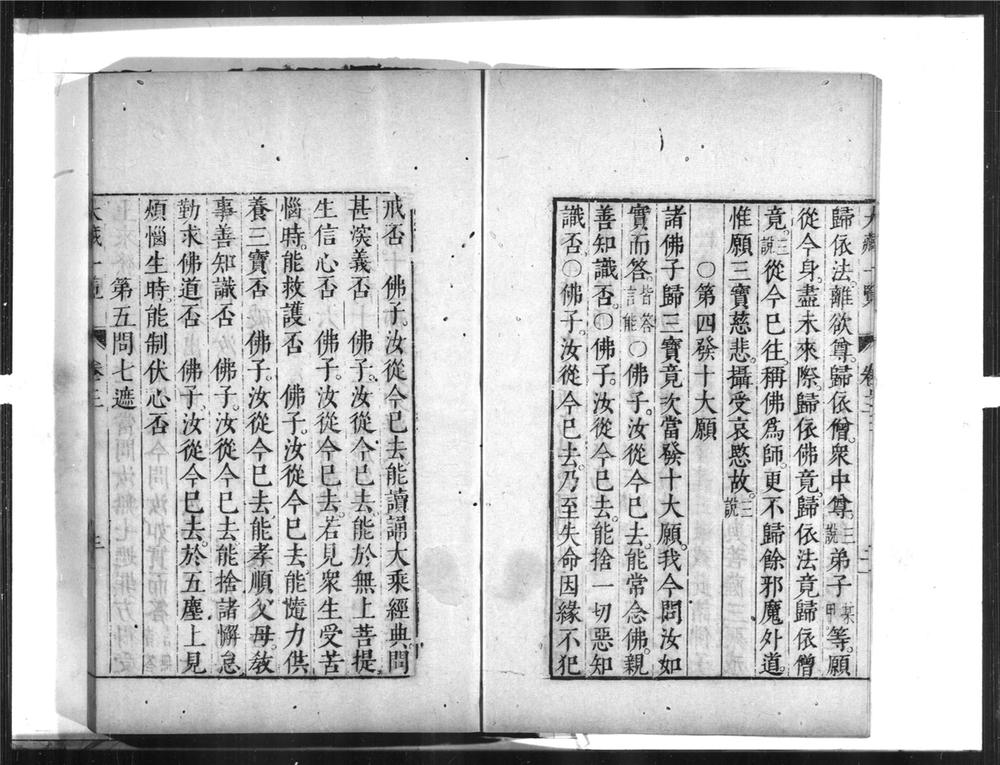 大藏一覽 卷三 二
歸依法。離欲尊。歸依僧。衆中尊。三說弟子某甲等。願
從今身。盡未來際。歸依佛竟。歸依法竟歸依僧
竟。三說從今已往。稱佛爲師。更不歸餘邪魔外道。
惟願三寶慈悲。攝受哀愍故。三說
○第四發十大願
諸佛子歸三寶竟次當發十大願。我今問汝如
實而答。皆答言能○佛子。汝從今已去。能常念佛。親
善知識否。○佛子。汝從今已去。能捨一切惡知
識否。○佛子。汝從今已去。乃至失命因緣不犯
戒否 佛子。汝從今已去能讀誦大乘經典。問
甚深義否 佛子。汝從今已去。能於無上菩提
生信心否 佛子。汝從今已去。若見衆生受苦
惱時。能救護否 佛子汝從今已去。能隨力供
養三寶否 佛子。汝從今已去能孝順父母。敎
事善知識否 佛子。汝從今已去能捨諸懈怠。
勤求佛道否 佛子汝從今已去。於五塵上見
煩惱生時。能制伏心否
第五問七遮
大藏一覽 卷三